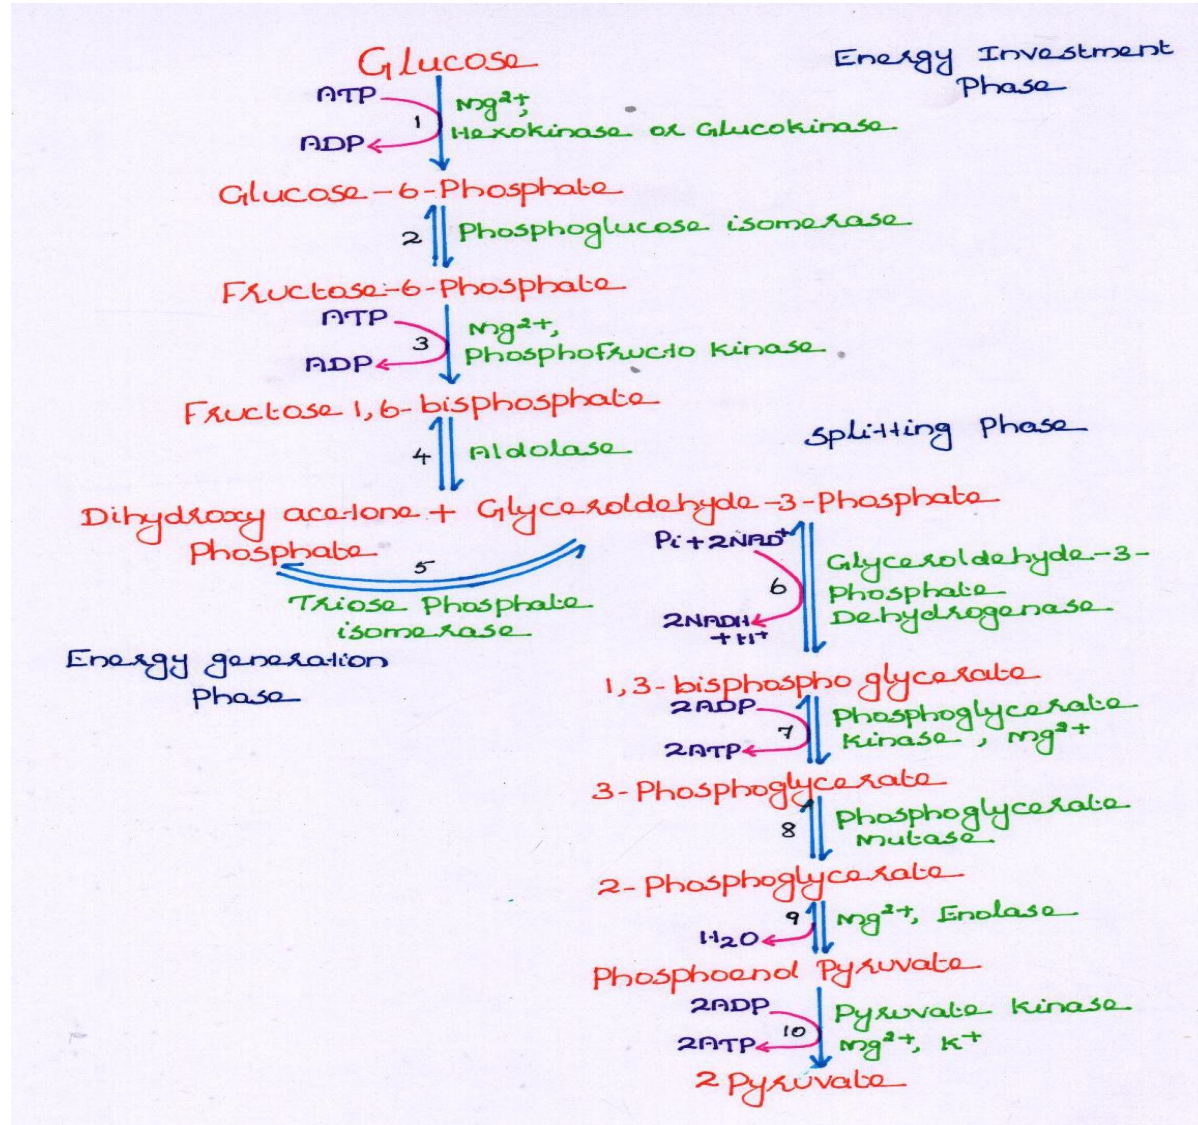 Glucose
Energy Investment
Phase
ATP
Mg2+,
1
Hexokinase or Glucokinase
ADP
Glucose-6-Phosphate
2
Phosphoglucose isomerase
Fructose-6-Phosphate
ATP
Mg2+,
3
Phosphofructo kinase
ADP
Fructose 1,6-bisphosphate
4
Aldolase
Splitting Phase
Dihydroxy acetone + Glyceroldehyde-3-Phosphate
Phosphate
5
Triose Phosphate
isomerase
Pi+2NAD+
6
2NADH
+H+
Glyceroldehyde-3-
Phosphate
Dehydrogenase
Energy generation
Phase
1,3-bisphospho glycerate
2ADP
7
2ATP
Phosphoglycerate
kinase, Mg2+
3-Phosphoglycerate
8
Phosphoglycerate
mutase
2-Phosphoglycerate
9
Mg2+, Enolase
H2O
Phosphoenol Pyruvate
2ADP
10
2ATP
Pyruvate kinase
Mg2+, K+
2 Pyruvate